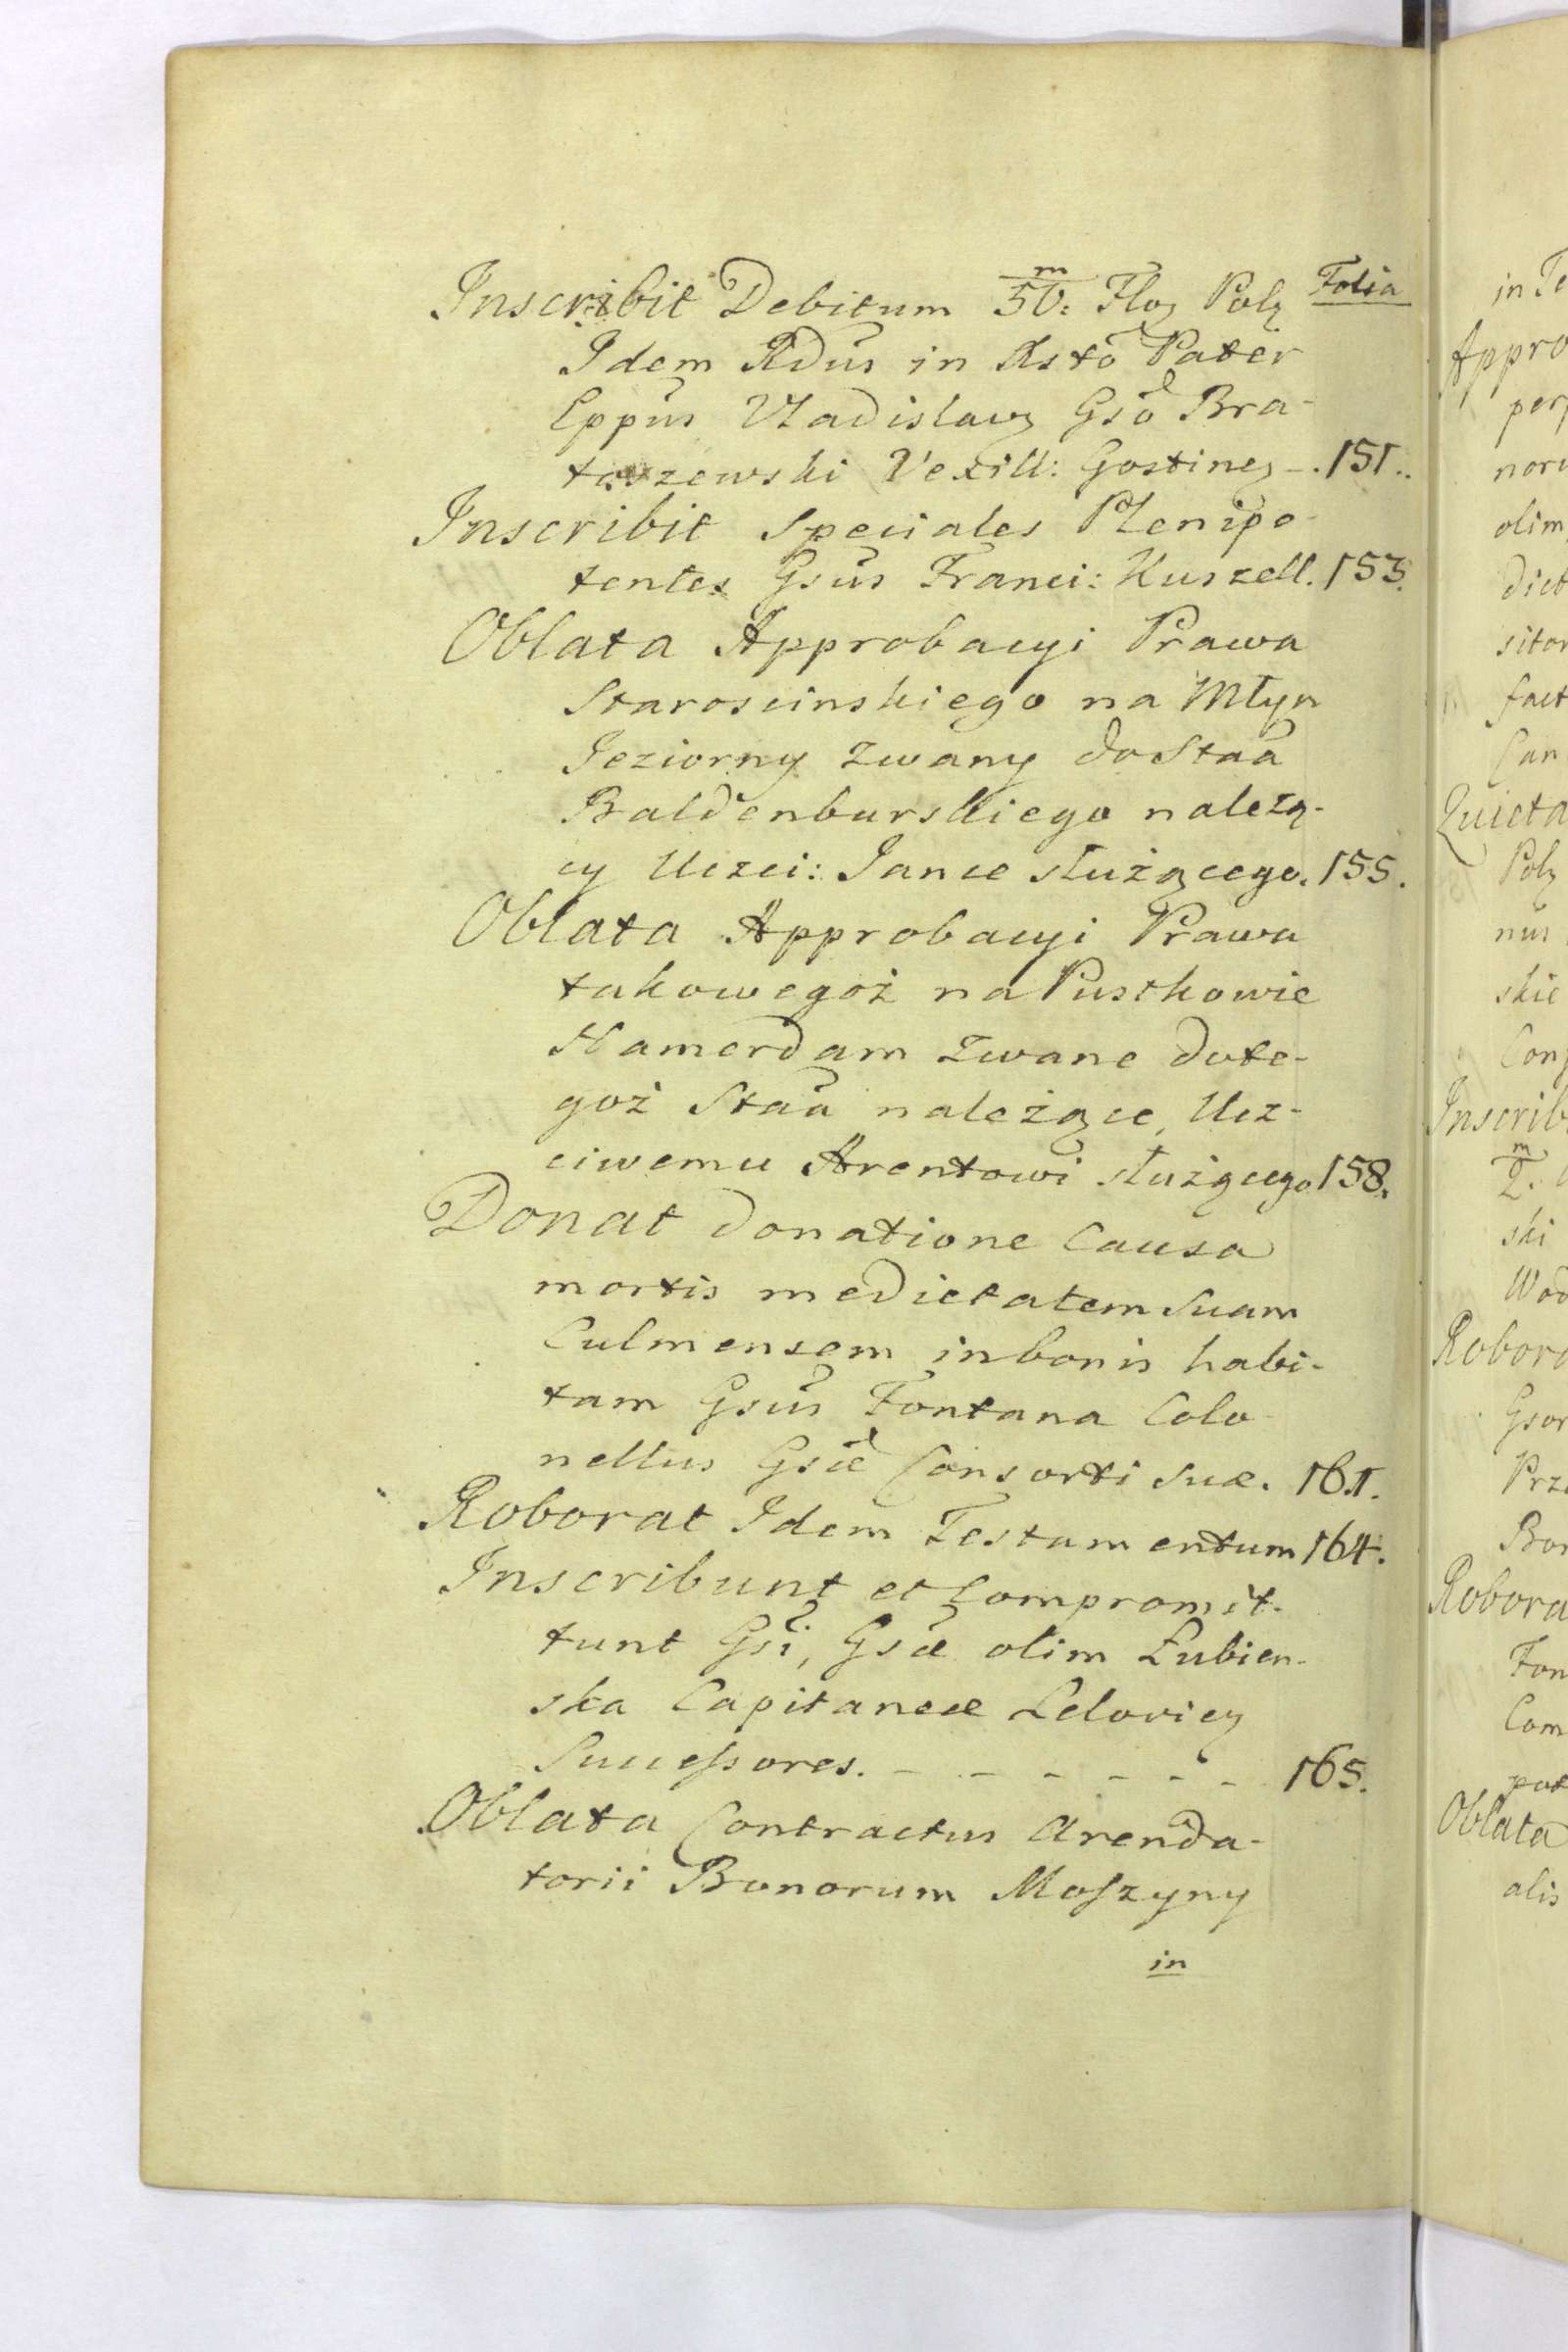 Folia
Inscribit Debitum 50. m Floz Polz
Idem Rdūs in Xsto Pater
Eppūs Vladislavz Gsō Bra-
toszewski Vexill: Gostinez - 151.
Inscribit Speciales Plenipo-
tentes Gsūs Franci: Kuszell. 153.
Oblata Approbacyi Prawa
Staroscinskiego na Młyn
Jeziorny zwany do Staā
Baldenburskiego należą-
cy Uczci: Jance służącego. 155.
Oblata Approbacyi Prawa
takowegoż na Pustkowie
Hamerdam zwane do te-
goż Staā należące, Ucz-
ciwemu Arentowi służącego 158.
Donat donatione Causa
mortis medietatem Suam
Culmensem in bonis habi-
tam Gsūs Fontana Colo-
nellus Gsæ Consorti suæ. 161.
Roborat Idem Testamentum 164.
Inscribunt et Compromit-
tunt Gsi, Gsæ olim Łubien-
ska Capitaneæ Leloviez
Successores. - - - - - - 165.
Oblata Contractus Arenda-
torii Bonorum Moszyny
in
in Te
Appro
per
noru
olim
dict
sitor
fact
Can
Quieta
Polz
nus
skie
Con
Inscrib
m
2.
ski
Wod
Robora
Gsor
Prz
Bor
Robora
Fon
Com
pot
Oblata
alis